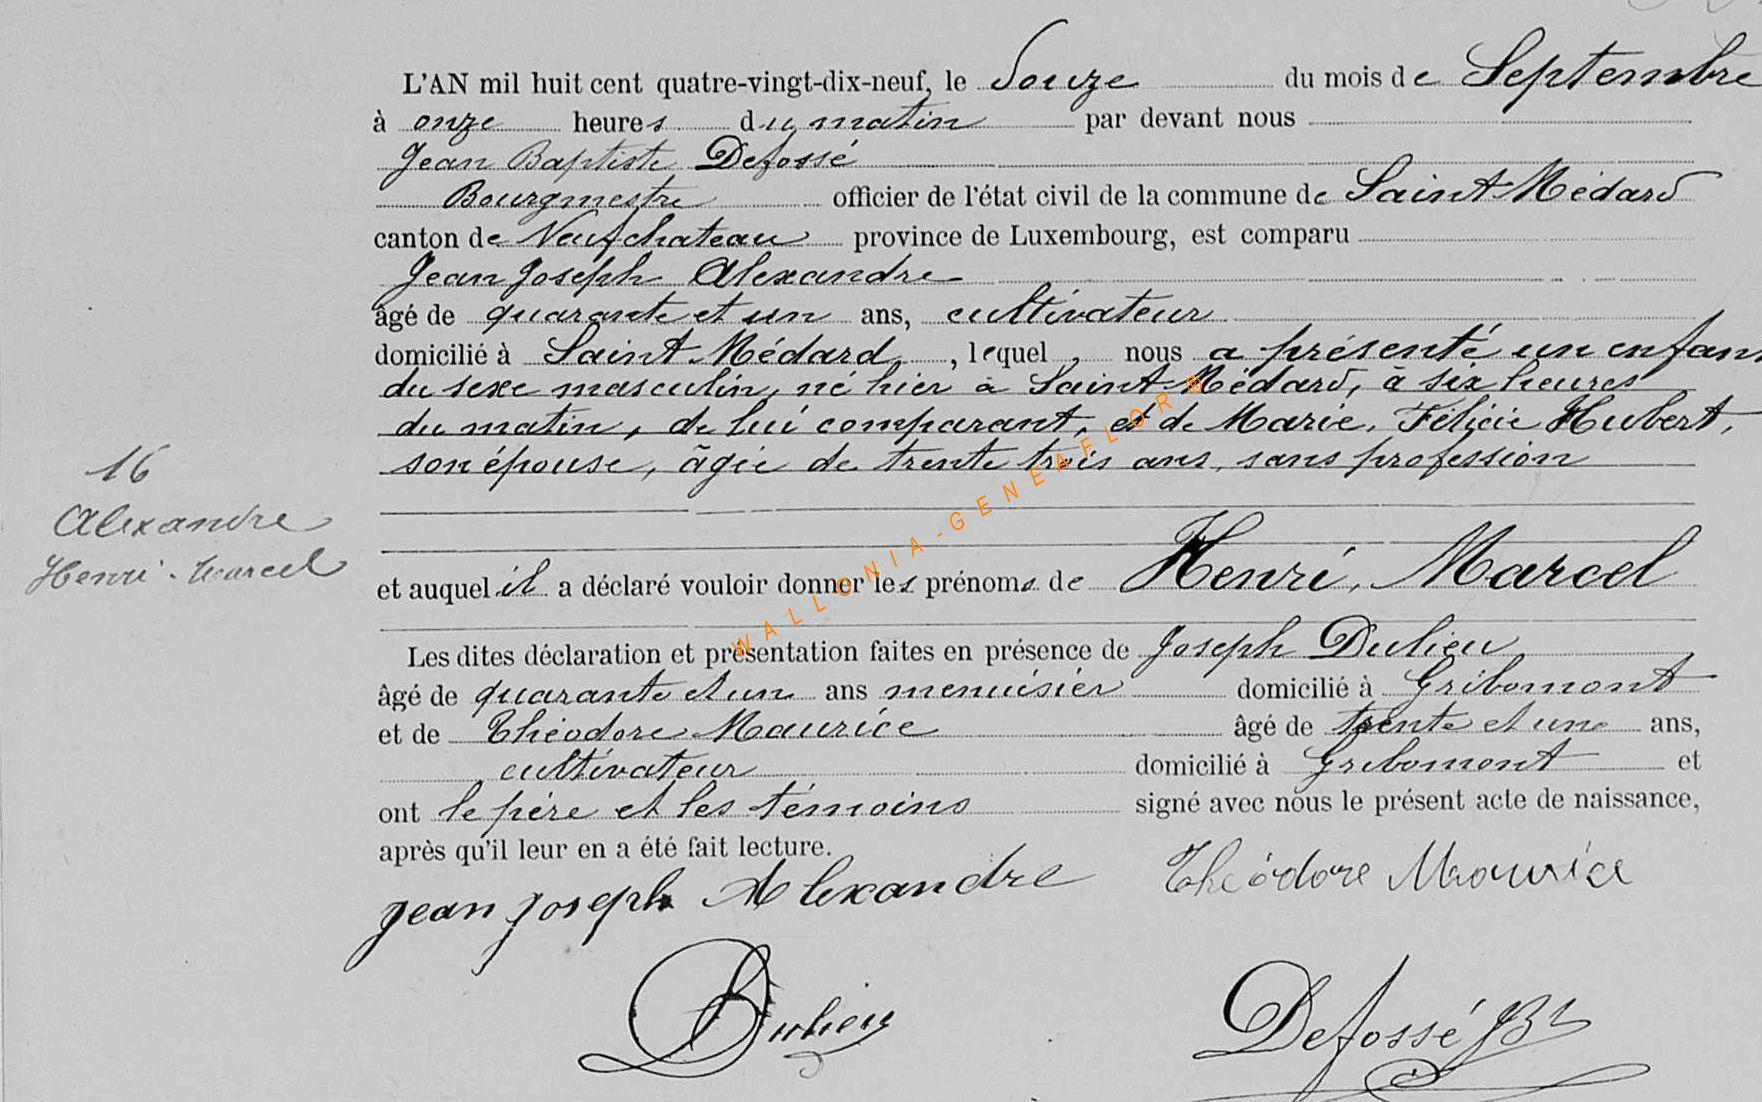 L'AN mil huit cent quatre-vingt-dix-neuf, le douze du mois de Septembre
à onze heures du matin par devant nous
Jean Baptiste Defossé
Bourgmestre officier de l'état civil de la commune de Saint-Médard
canton de Neufchateau province de Luxembourg, est comparu
Jean Joseph Alexandre
âgé de quarante et un ans, cultivateur
domicilié à Saint-Médard, lequel, nous a présenté un enfant
du sexe masculin, né hier à Saint-Médard, à six heures
du matin, de lui comparant, et de Marie, Félicie Hubert,
son épouse, âgée de trente trois ans, sans profession
16
Alexandre
Henri-Marcel
et auquel il a déclaré vouloir donner les prénoms de Henri, Marcel
Les dites déclaration et présentation faites en présence de Joseph Dulieu
âgé de quarante et un ans menuisier domicilié à Gribomont
et de Théodore Maurice âgé de trente et un ans,
cultivateur domicilié à Gribomont et
ont le père et les témoins signé avec nous le présent acte de naissance,
après qu'il leur en a été fait lecture.
jean joseph Alexandre Théodore Maurice
Dulieu Defossé JBt
WALLONIA-GENEAFLOR®